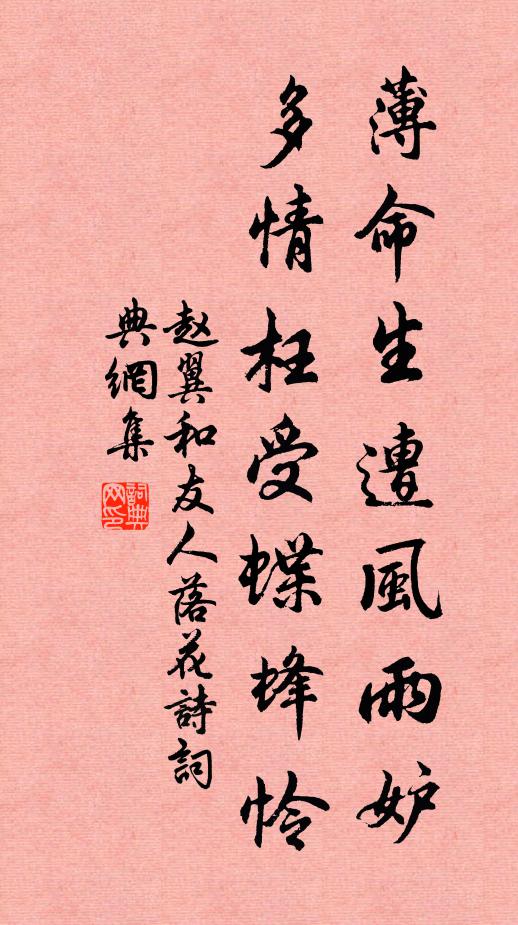 薄命生遭風雨妒
多情枉受蝶蜂怜
赵翼和友人落花詩詞
典網集
詞典
网印